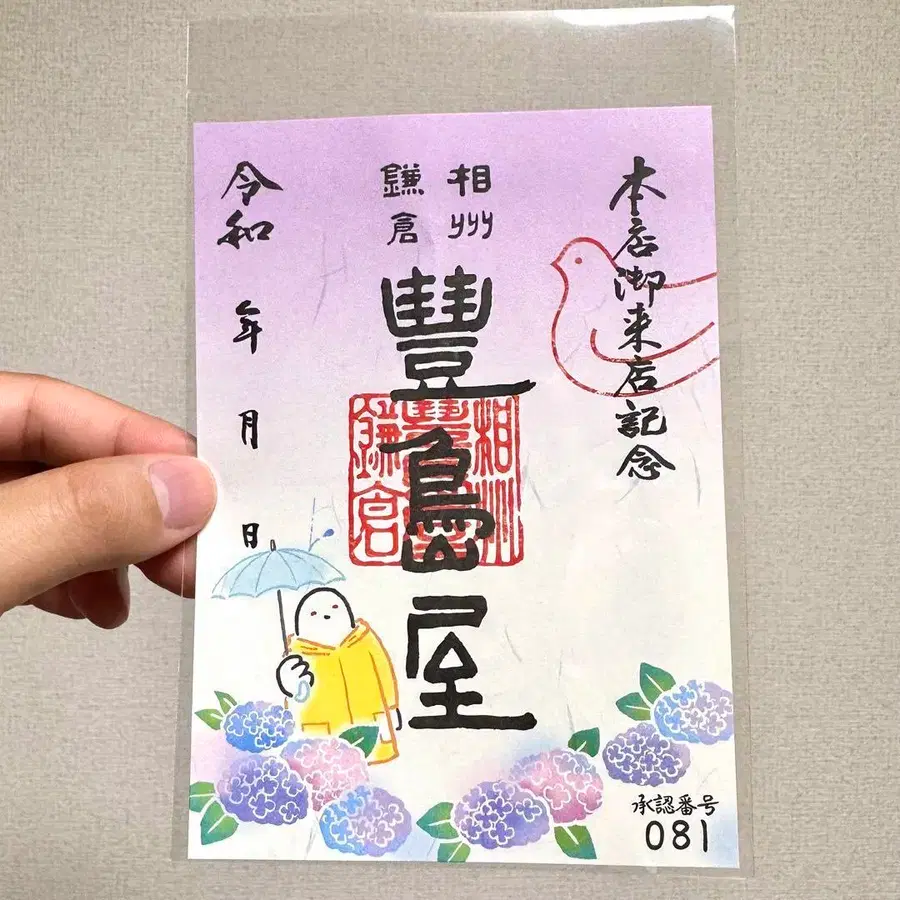 本店御来店記念
相州
鎌倉
豐島屋
相州
鎌倉
令和 年 月 日
承認番号
081